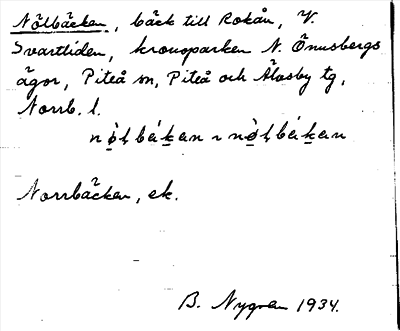 Nölbäcken, bäck till Rokån, V.
Svartliden, kronoparken N. Önusbergs
ägor, Piteå sn, Piteå och Älvsby tg,
Norrb. l.
Norrbäcken, ek.
B. Nygren 1934.